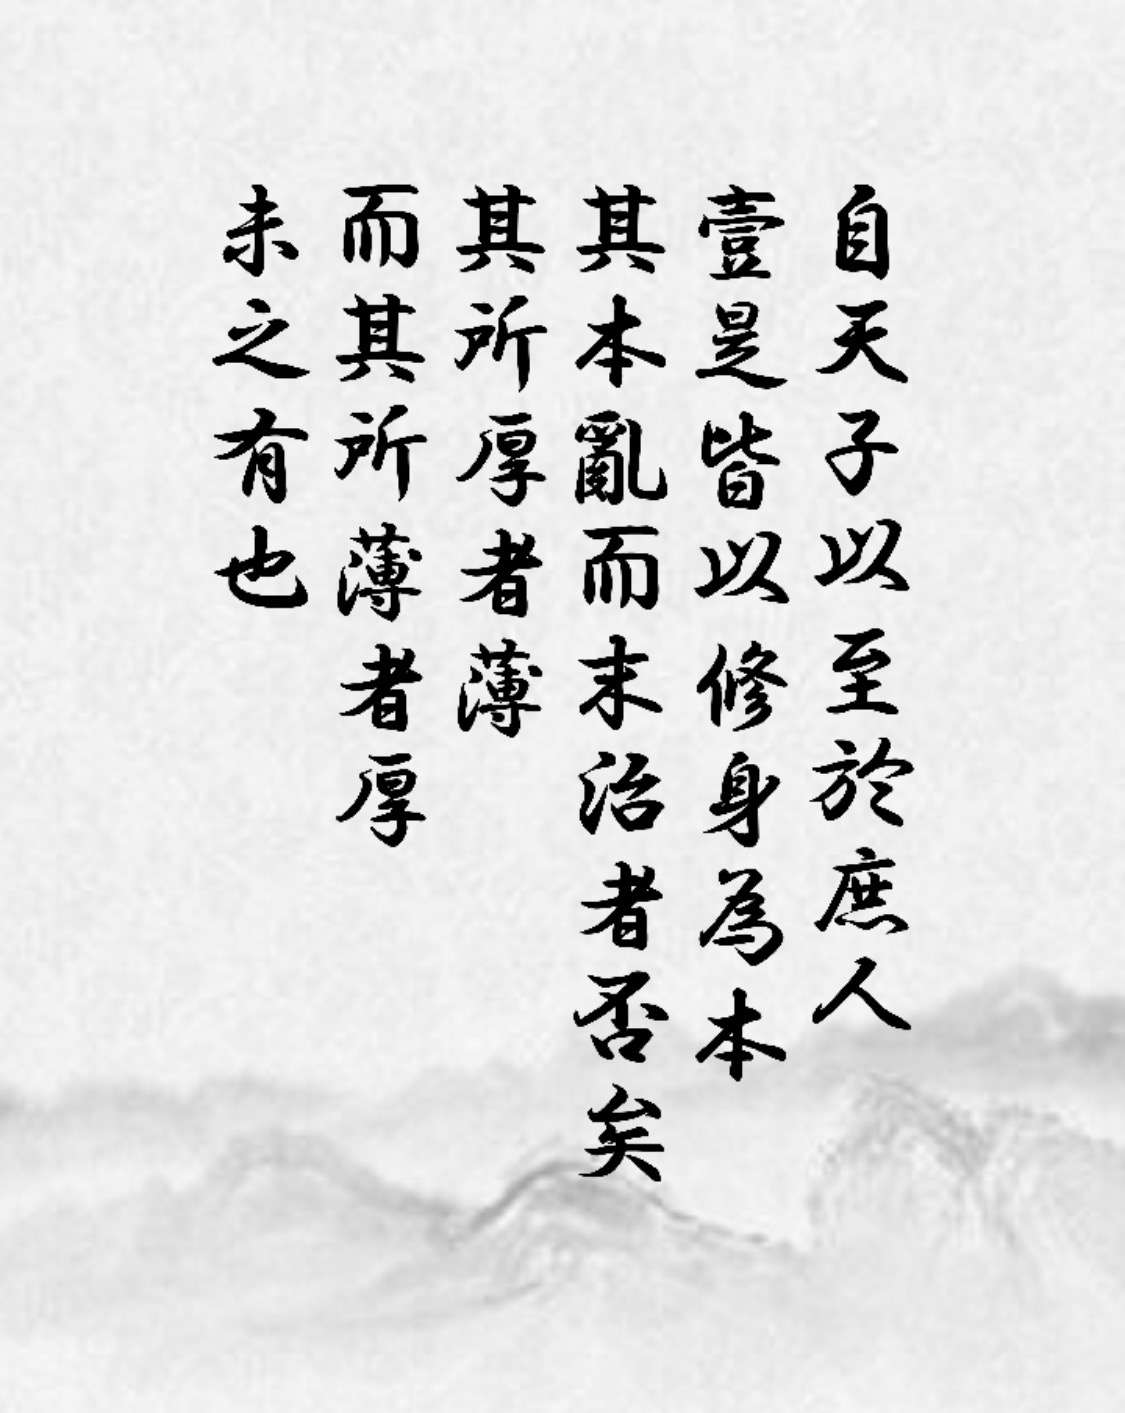 自天子以至於庶人
壹是皆以修身為本
其本亂而末治者否矣
其所厚者薄
而其所薄者厚
未之有也